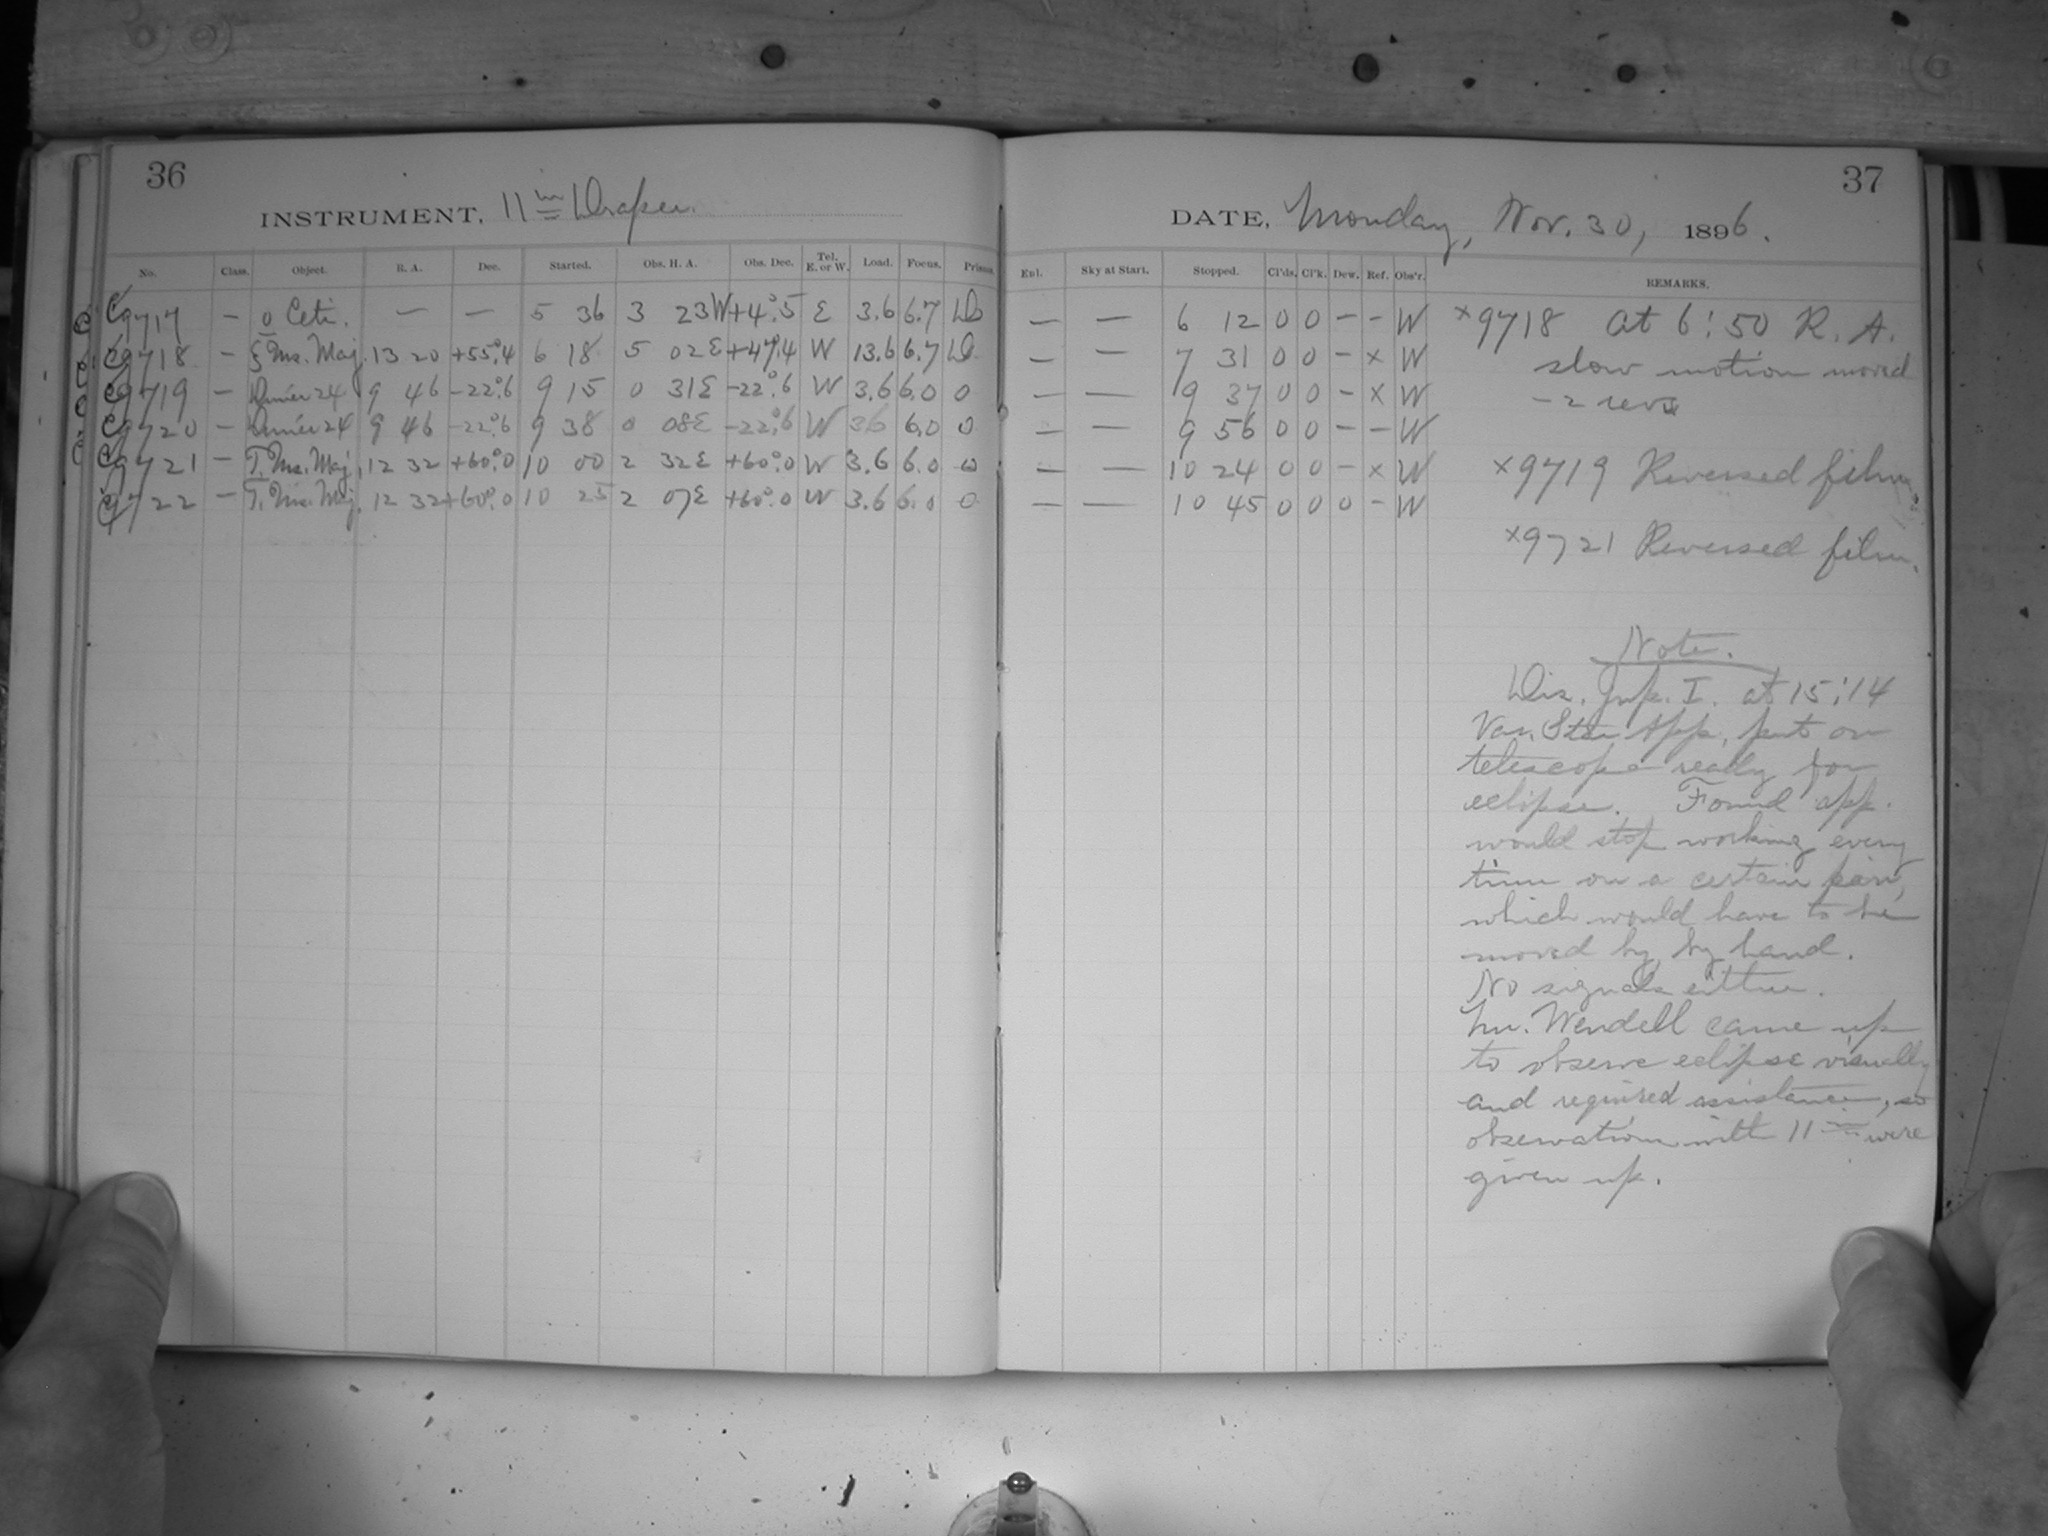 36
INSTRUMENT, 11 in Draper.
No. Class. Object. R. A. Dec. Started. Obs. H. A. Obs. Dec. Tel. E. or W. Load. Focus. Prisms.
C9717 – o Ceti. — — 5 36 3 23W +4°.5 E 3.6 6.7 D
C9718 – ξ Urs. Maj. 13 20 +55°.4 6 18 5 02E +47°.4 W 13.6 6.7 D
C9719 – Dunér 24 9 46 -22°.6 9 15 0 31E -22°.6 W 3.6 6.0 0
C9720 – Dunér 24 9 46 -22°.6 9 38 0 08E -22°.6 W 3.6 6.0 0
C9721 – T. Urs. Maj. 12 32 +60°.0 10 00 2 32E +60°.0 W 3.6 6.0 0
C9722 – T. Urs. Maj. 12 32 +60°.0 10 25 2 07E +60°.0 W 3.6 6.0 0
37
DATE, Monday, Nov. 30, 1896.
Enl. Sky at Start. Stopped. Cl'ds. Cl'k. Dew. Ref. Obs'r. REMARKS.
— — 6 12 0 0 – – W
— — 7 31 0 0 – x W
— — 9 37 0 0 – x W
— — 9 56 0 0 – – W
— — 10 24 0 0 – x W
— — 10 45 0 0 0 – W
x9718 at 6:50 R. A.
slow motion moved
– 2 revs
x9719 Reversed film
x9721 Reversed film.
Note.
Dis. Jup. I. at 15:14
Var. Star App. put on
telescope ready for
eclipse. Found app.
would stop working every
time on a certain pair,
which would have to be
moved by by hand.
No signals either.
Mr. Wendell came up
to observe eclipse visually
and required assistance, so
observations with 11 in were
given up.